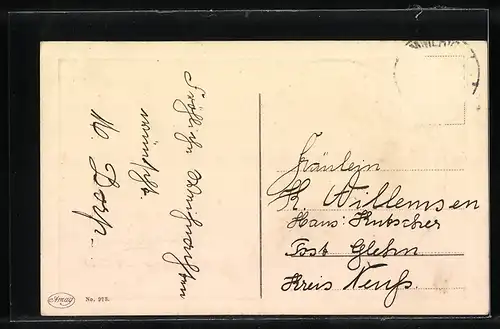 Fröhliche Weihnachten
wünscht.
N. Dorp..
Fräulein
K. Willemsen
Haus: Kutscher
Post Glehn
Kreis Neuß.
Amag No. 973.